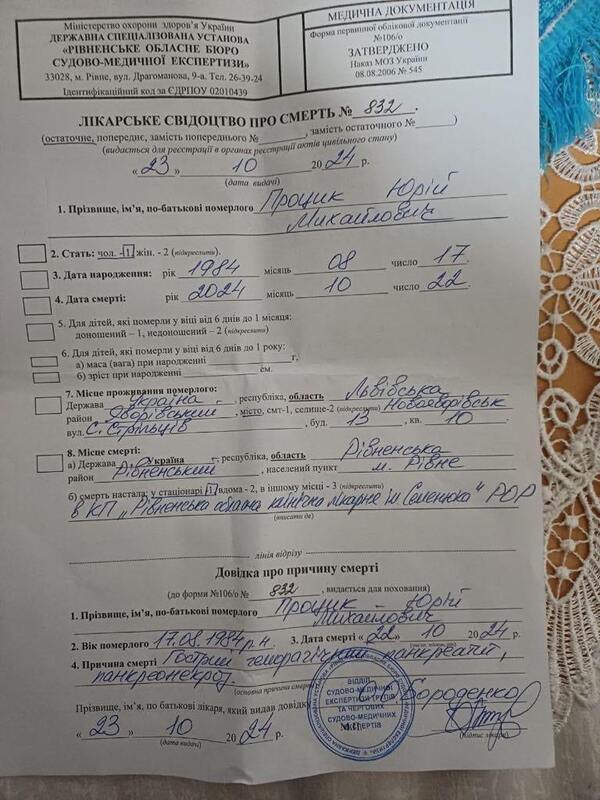 Міністерство охорони здоров'я України
ДЕРЖАВНА СПЕЦІАЛІЗОВАНА УСТАНОВА
«РІВНЕНСЬКЕ ОБЛАСНЕ БЮРО
СУДОВО-МЕДИЧНОЇ ЕКСПЕРТИЗИ»
33028, м. Рівне, вул. Драгоманова, 9-а. Тел. 26-39-24
Ідентифікаційний код за ЄДРПОУ 02010439
МЕДИЧНА ДОКУМЕНТАЦІЯ
Форма первинної облікової документації
№106/о
ЗАТВЕРДЖЕНО
Наказ МОЗ України
08.08.2006 № 545
ЛІКАРСЬКЕ СВІДОЦТВО ПРО СМЕРТЬ № 832.
(остаточне, попереднє, замість попереднього №________, замість остаточного №______)
(видається для реєстрації в органах реєстрації актів цивільного стану)
« 23 » 10 2024 р.
(дата видачі)
1. Прізвище, ім'я, по-батькові померлого Процик Юрій
Михайлович
2. Стать: чол. -1 жін. - 2 (підкреслити).
3. Дата народження: рік 1984 місяць 08 число 17
4. Дата смерті: рік 2024 місяць 10 число 22
5. Для дітей, які померли у віці від 6 днів до 1 місяця:
доношений – 1, недоношений – 2 (підкреслити)
6. Для дітей, які померли у віці від 6 днів до 1 року:
а) маса (вага) при народженні ____________ г,
б) зріст при народженні ____________см.
7. Місце проживання померлого:
Держава Україна, республіка, область Львівська
район Яворівський, місто, смт-1, селище-2 (підкреслити) Новояворівськ
вул. С. Стрільців, буд. 13, кв. 10
8. Місце смерті:
а) Держава Україна, республіка, область Рівненська
район Рівненський, населений пункт м. Рівне
б) смерть настала: у стаціонарі -1 вдома - 2, в іншому місці - 3 (підкреслити)
в КП „Рівненська обласна клінічна лікарне ім Семенюка" РОР
(вписати де)
лінія відрізу
Довідка про причину смерті
(до форми №106/о № 832, видається для поховання)
1. Прізвище, ім'я, по-батькові померлого Процик Юрій
Михайлович
2. Вік померлого 17.08.1984 р.н. 3. Дата смерті « 22 » 10 2024 р.
4. Причина смерті Гострий геморагічний панкреатит,
панкреонекроз.
(основна причина смерті)
Прізвище, ім'я, по батькові лікаря, який видав довідку Бороденко
« 23 » 10 2024 р.
(дата видачі)
(підпис лікаря)
ВІДДІЛ
СУДОВО-МЕДИЧНОЇ
ЕКСПЕРТИЗИ ТРУПІВ
ТА ЧЕРГОВИХ
СУДОВО-МЕДИЧНИХ
ЕКСПЕРТІВ